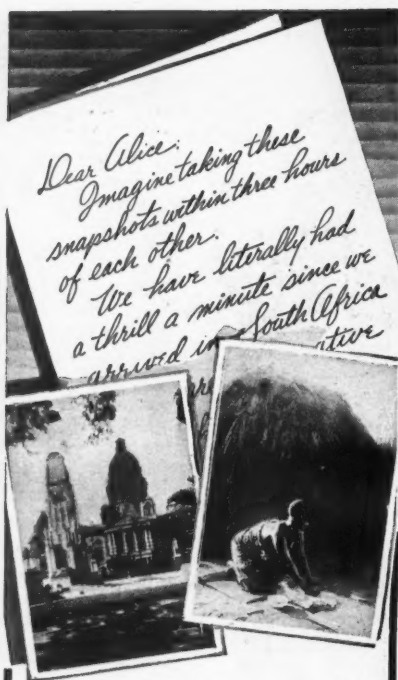 Dear Alice:
Imagine taking these
snapshots within three hours
of each other.
We have literally had
a thrill a minute since we
arrived in South Africa
ative